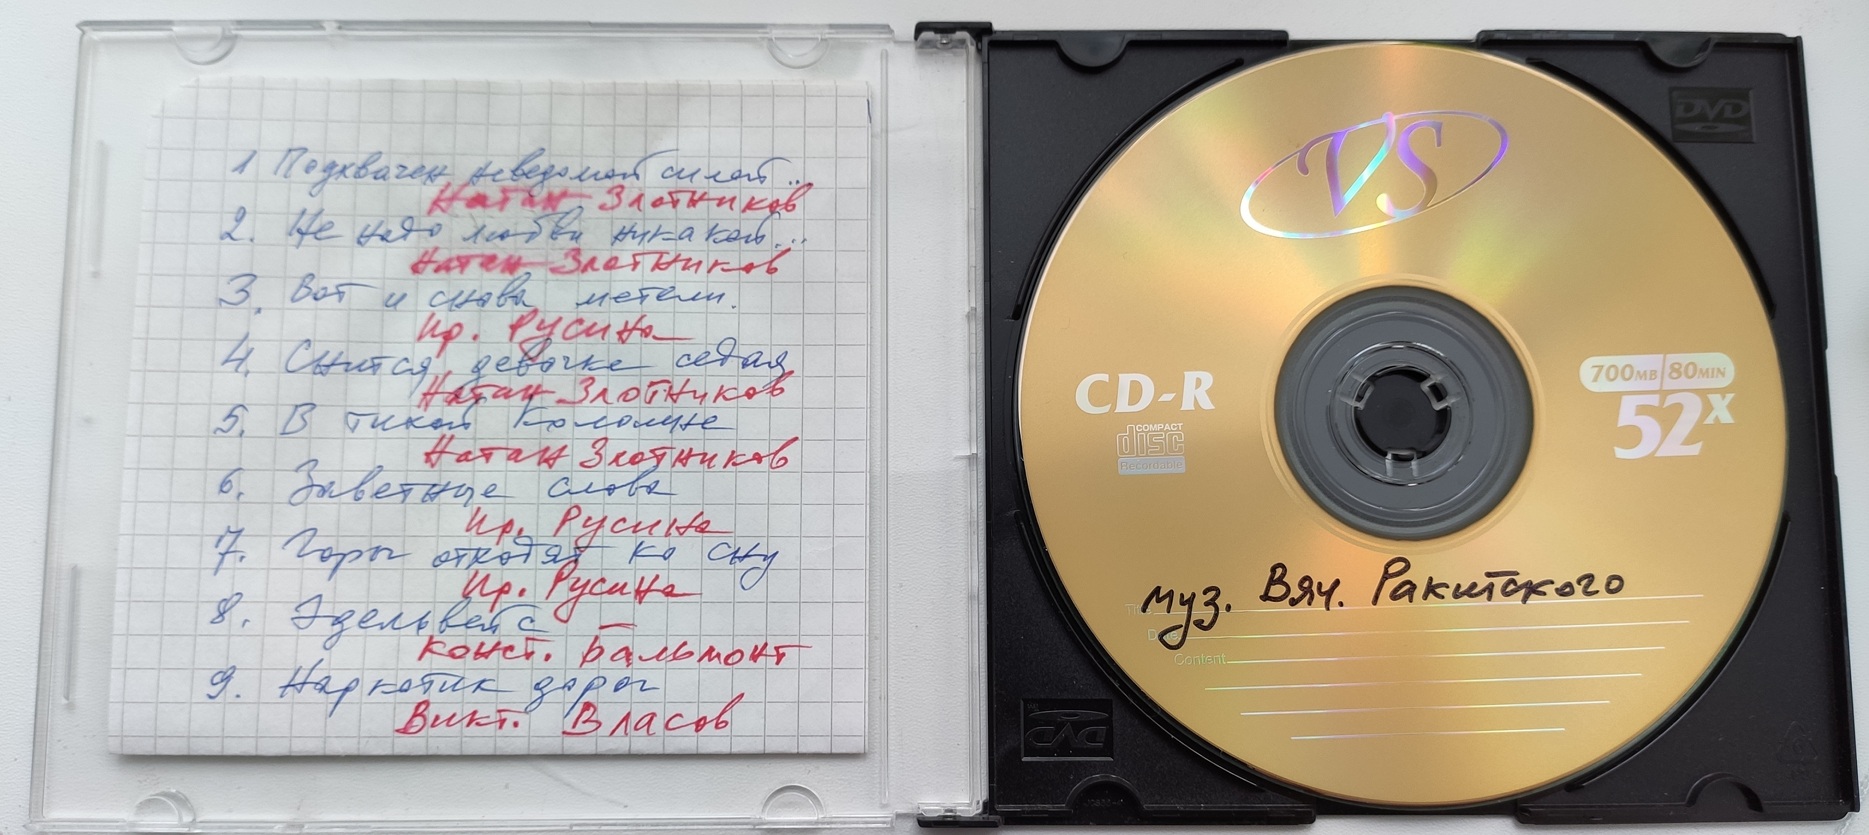 1 Подхвачен неведомой силой...
Натан Злотников
2. Не надо любви никакой...
Натан Злотников
3. Вот и снова метели.
Ир. Русина
4. Снится девочке седая
Натан Злотников
5. В тихой Коломне
Натан Злотников
6. Заветные слова
Ир. Русина
7. Горы отходят ко сну
Ир. Русина
8. Эдельвейс
Конст. Бальмонт
9. Наркотик дорог
Викт. Власов
VS
DVD
CD-R
COMPACT
disc
Recordable
700MB 80MIN
52x
муз. Вяч. Ракитского
Title
Date
Content
DVD